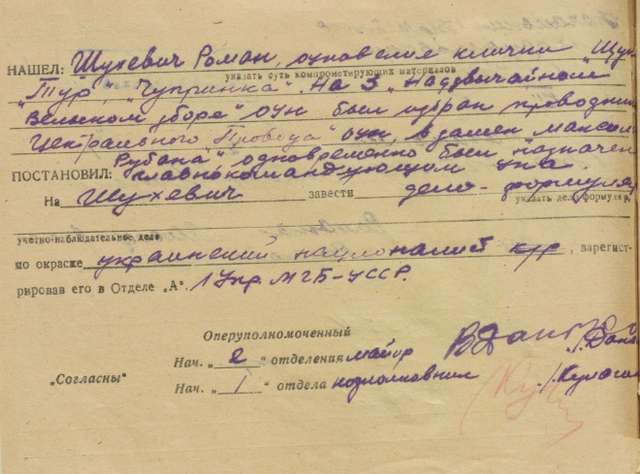 НАШЕЛ: Шухевич Роман, основные клички „Щук
указать суть компрометирующих материалов
„Тур", „Чупринка". На 3 „Надзвычайном
Вельском зборе" оун был избран проводни
Центрального Провода" оун, взамен „Максим
Рубана" одновременно был назначен
ПОСТАНОВИЛ: главнокомандующим упа
На Шухевич завести дело-формуляр
указать дел. формуляр,
учетно-наблюдательное дело
по окраске украинский националист к/р , зарегист-
рировав его в Отделе „А". 1 Упр. МГБ-УССР.
Оперуполномоченный
Нач. „ 2 " отделения майор
„Согласны"
Нач. „ 1 " отдела подполковник